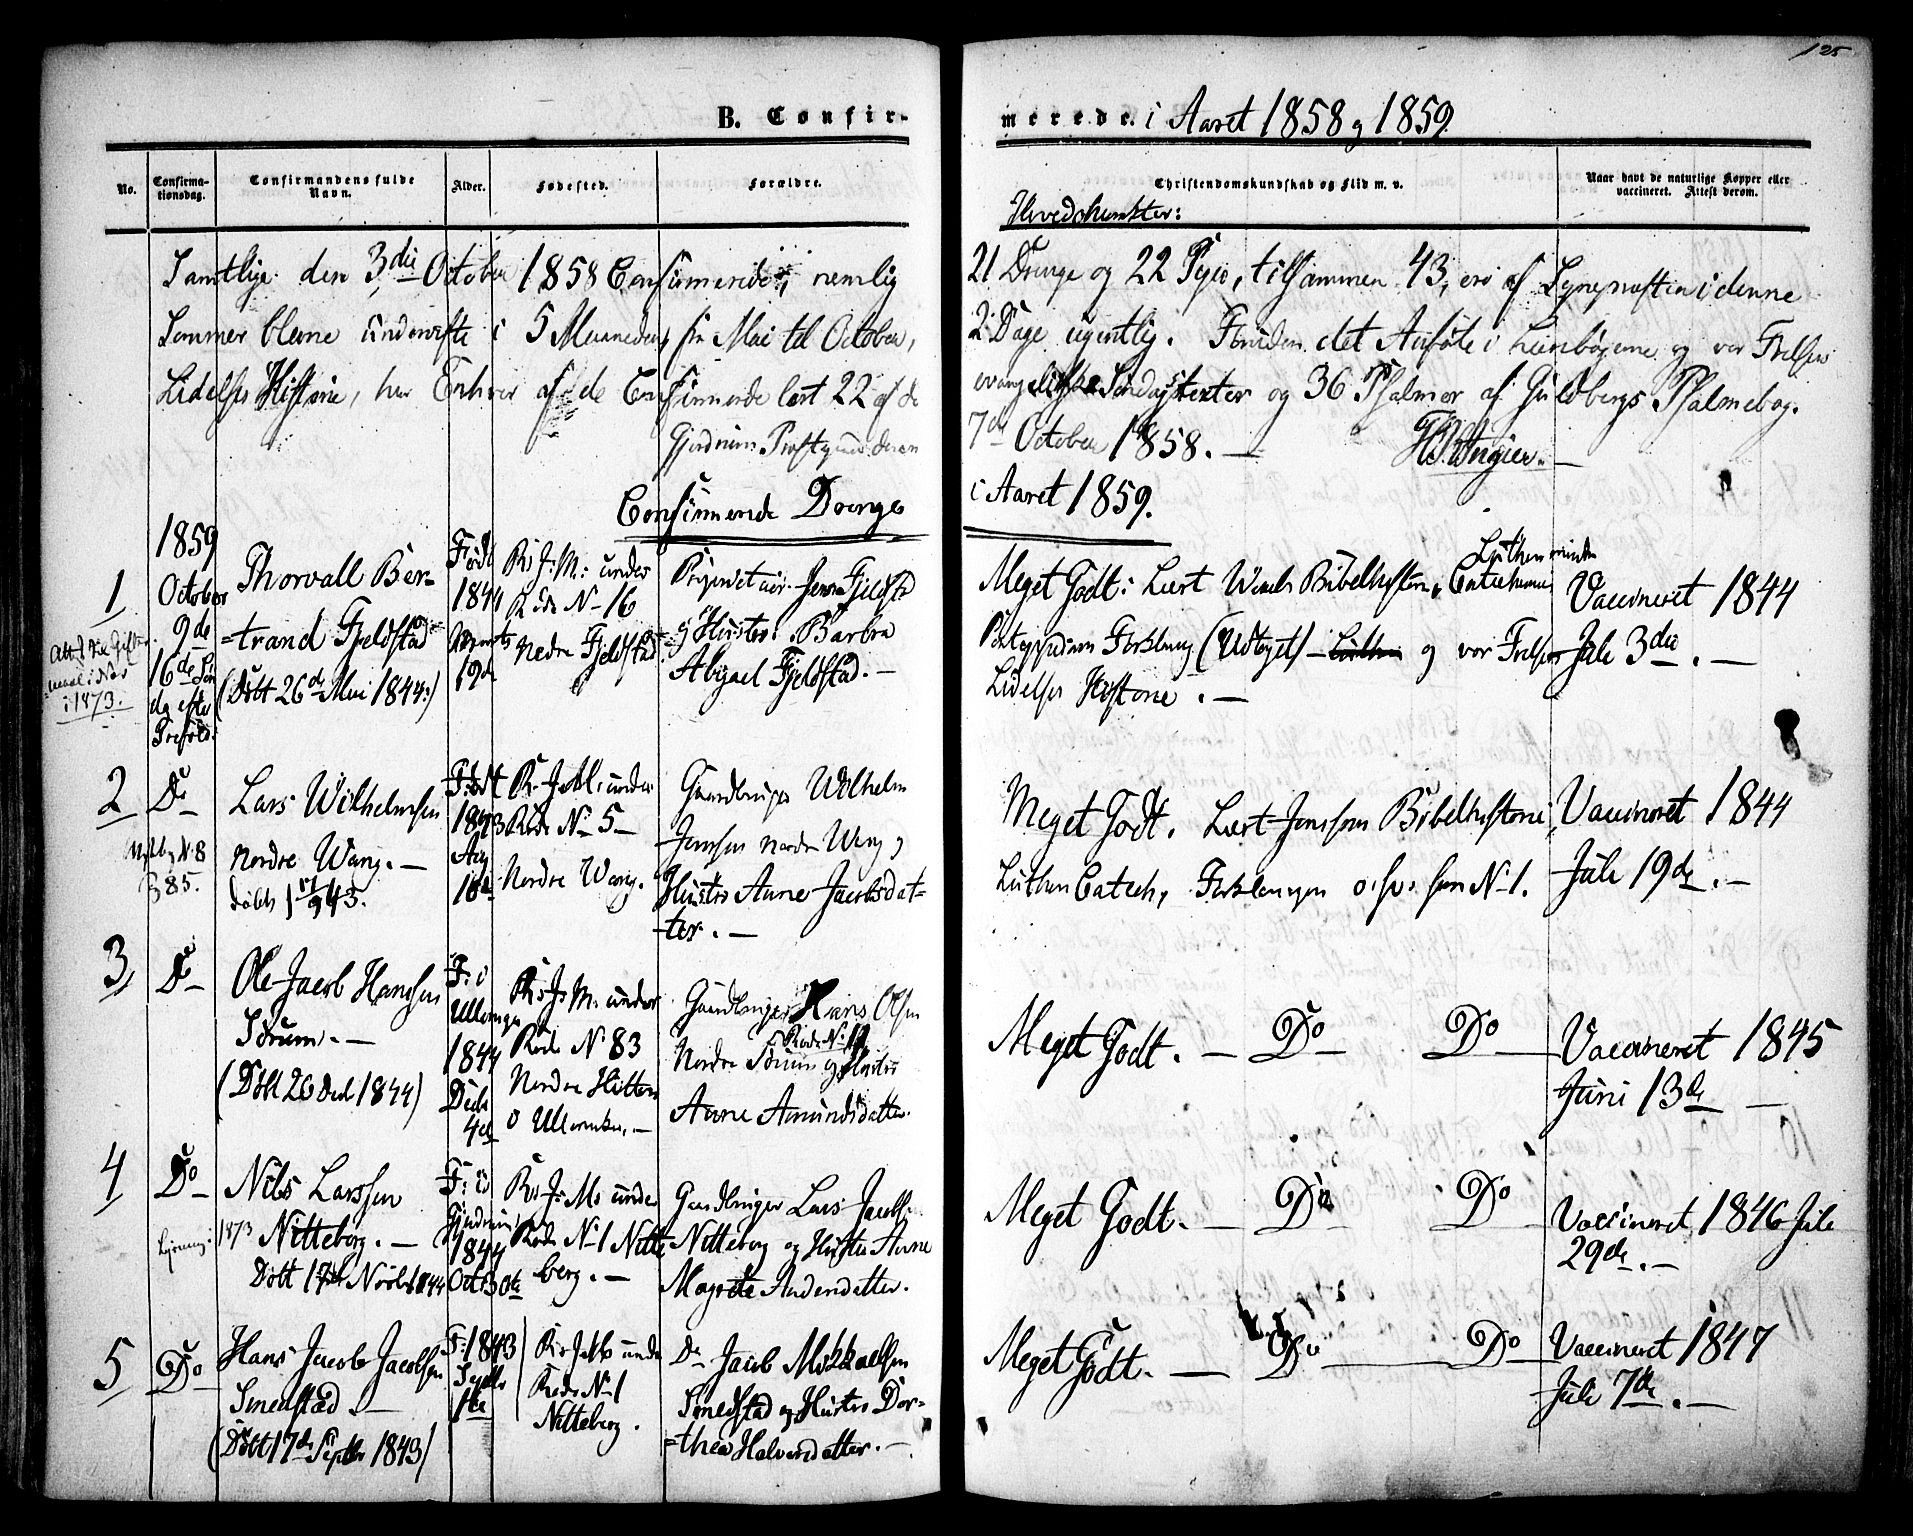 125
B. Confir-
merede. i Aaret 1858 og 1859.
No.
Confirma-
tionsdag.
Confirmandens fulde
Navn.
Alder.
Fødested.
Forældre.
Christendomskundskab og Flid m. v.
Naar havt de naturlige Kopper eller
vaccineret. Attest derom.
Samtlige den 3die October 1858 Confirmerede, nemlig 21 Drenge og 22 Piger, tilsammen 43, ere af i denne
Sommer blevne underviste i 5 Maaneder, fra Mai til October, 2 Dage ugentlig. Foruden det Anførte i Lærebøgerne og vor Frelsers
Lidelses Historie, har Enhver af de Confirmerede lært 22 af de evangeliske Søndagstexter og 36 Psalmer af Guldbergs Psalmebog.
Gjerdrum 7de October 1858. —
Confirmerede Drenge i Aaret 1859.
1
1859
October
9de
16de Søn
dag efter
Trefold.
i 1873.
Thorvall Ber-
=trand Fjeldstad
(Døbt 26de Mai 1844.)
Født
1844
Marts
19de
R: J: M: under
Røde No 16
Nedre Fjeldstad
Jens Fjeldstad
og Hustro Barbra
Abigael Fjeldstad. —
Meget Godt: Lært Bibelhistorie, Luthers mindre
Catechismus
Forklaring (Udtoget) — og vor Frelsers
Lidelses Historie. —
Vaccineret 1844
Juli 3die. —
2
Do —
No 8
85.
Lars Wilhelmsen
Nordre Wang. —
døbt 17/9 43.
Født
1843
Aug
10de
R: J: M: under
Røde No 5 —
Nordre Wang.
Gaardbruger Wilhelm
Jensen Nordre Wang og
Hustro Anne Jacobsdat-
ter. —
Meget Godt. Lært Jensens Bibelhistorie,
Luthers Catech, Forklaringen o. s. v. som No 1.
Vaccineret 1844
Juli 19de. —
3
Do —
Ole Jacob Hanssen
Sørum. —
(Døbt 26 Decb 1844)
F: i
Ullensager
1844
Decbr
4de
R: J: M: under
Røde No 83
Nordre
i Ullensaker. —
Gaardbruger Hans Olsen
Røde No 12
Nordre Sørum og Hustro
Anne Amundsdatter.
Meget Godt. — Do — Do —
Vaccineret 1845
Juni 13de —
4
Do —
1873
Nils Larssen
Nitteberg. —
Døbt 17de Novbr 1844
F: i
Gjerdrum
1844
Oct 30te
R: J: M: under
Røde No 1 Nitte
berg. —
Gaardbruger Lars Jacobs.
Nitteberg og Hustro Anne
Magrete Andersdatter.
Meget Godt. — Do — Do —
Vaccineret 1846 Juli
29de. —
5
Do —
Hans Jacob Jacobsen
Smedstad. —
(Døbt 17de Septbr 1843)
F: 1843
Septbr
1te
R: J: M: under
Røde No 1
Nitteberg.
Do Jacob Mikkaelsen
Smedstad og Hustro Dor-
=thea Halvorsdatter. —
Meget Godt. — Do — Do —
Vaccineret 1847
Juli 7de. —